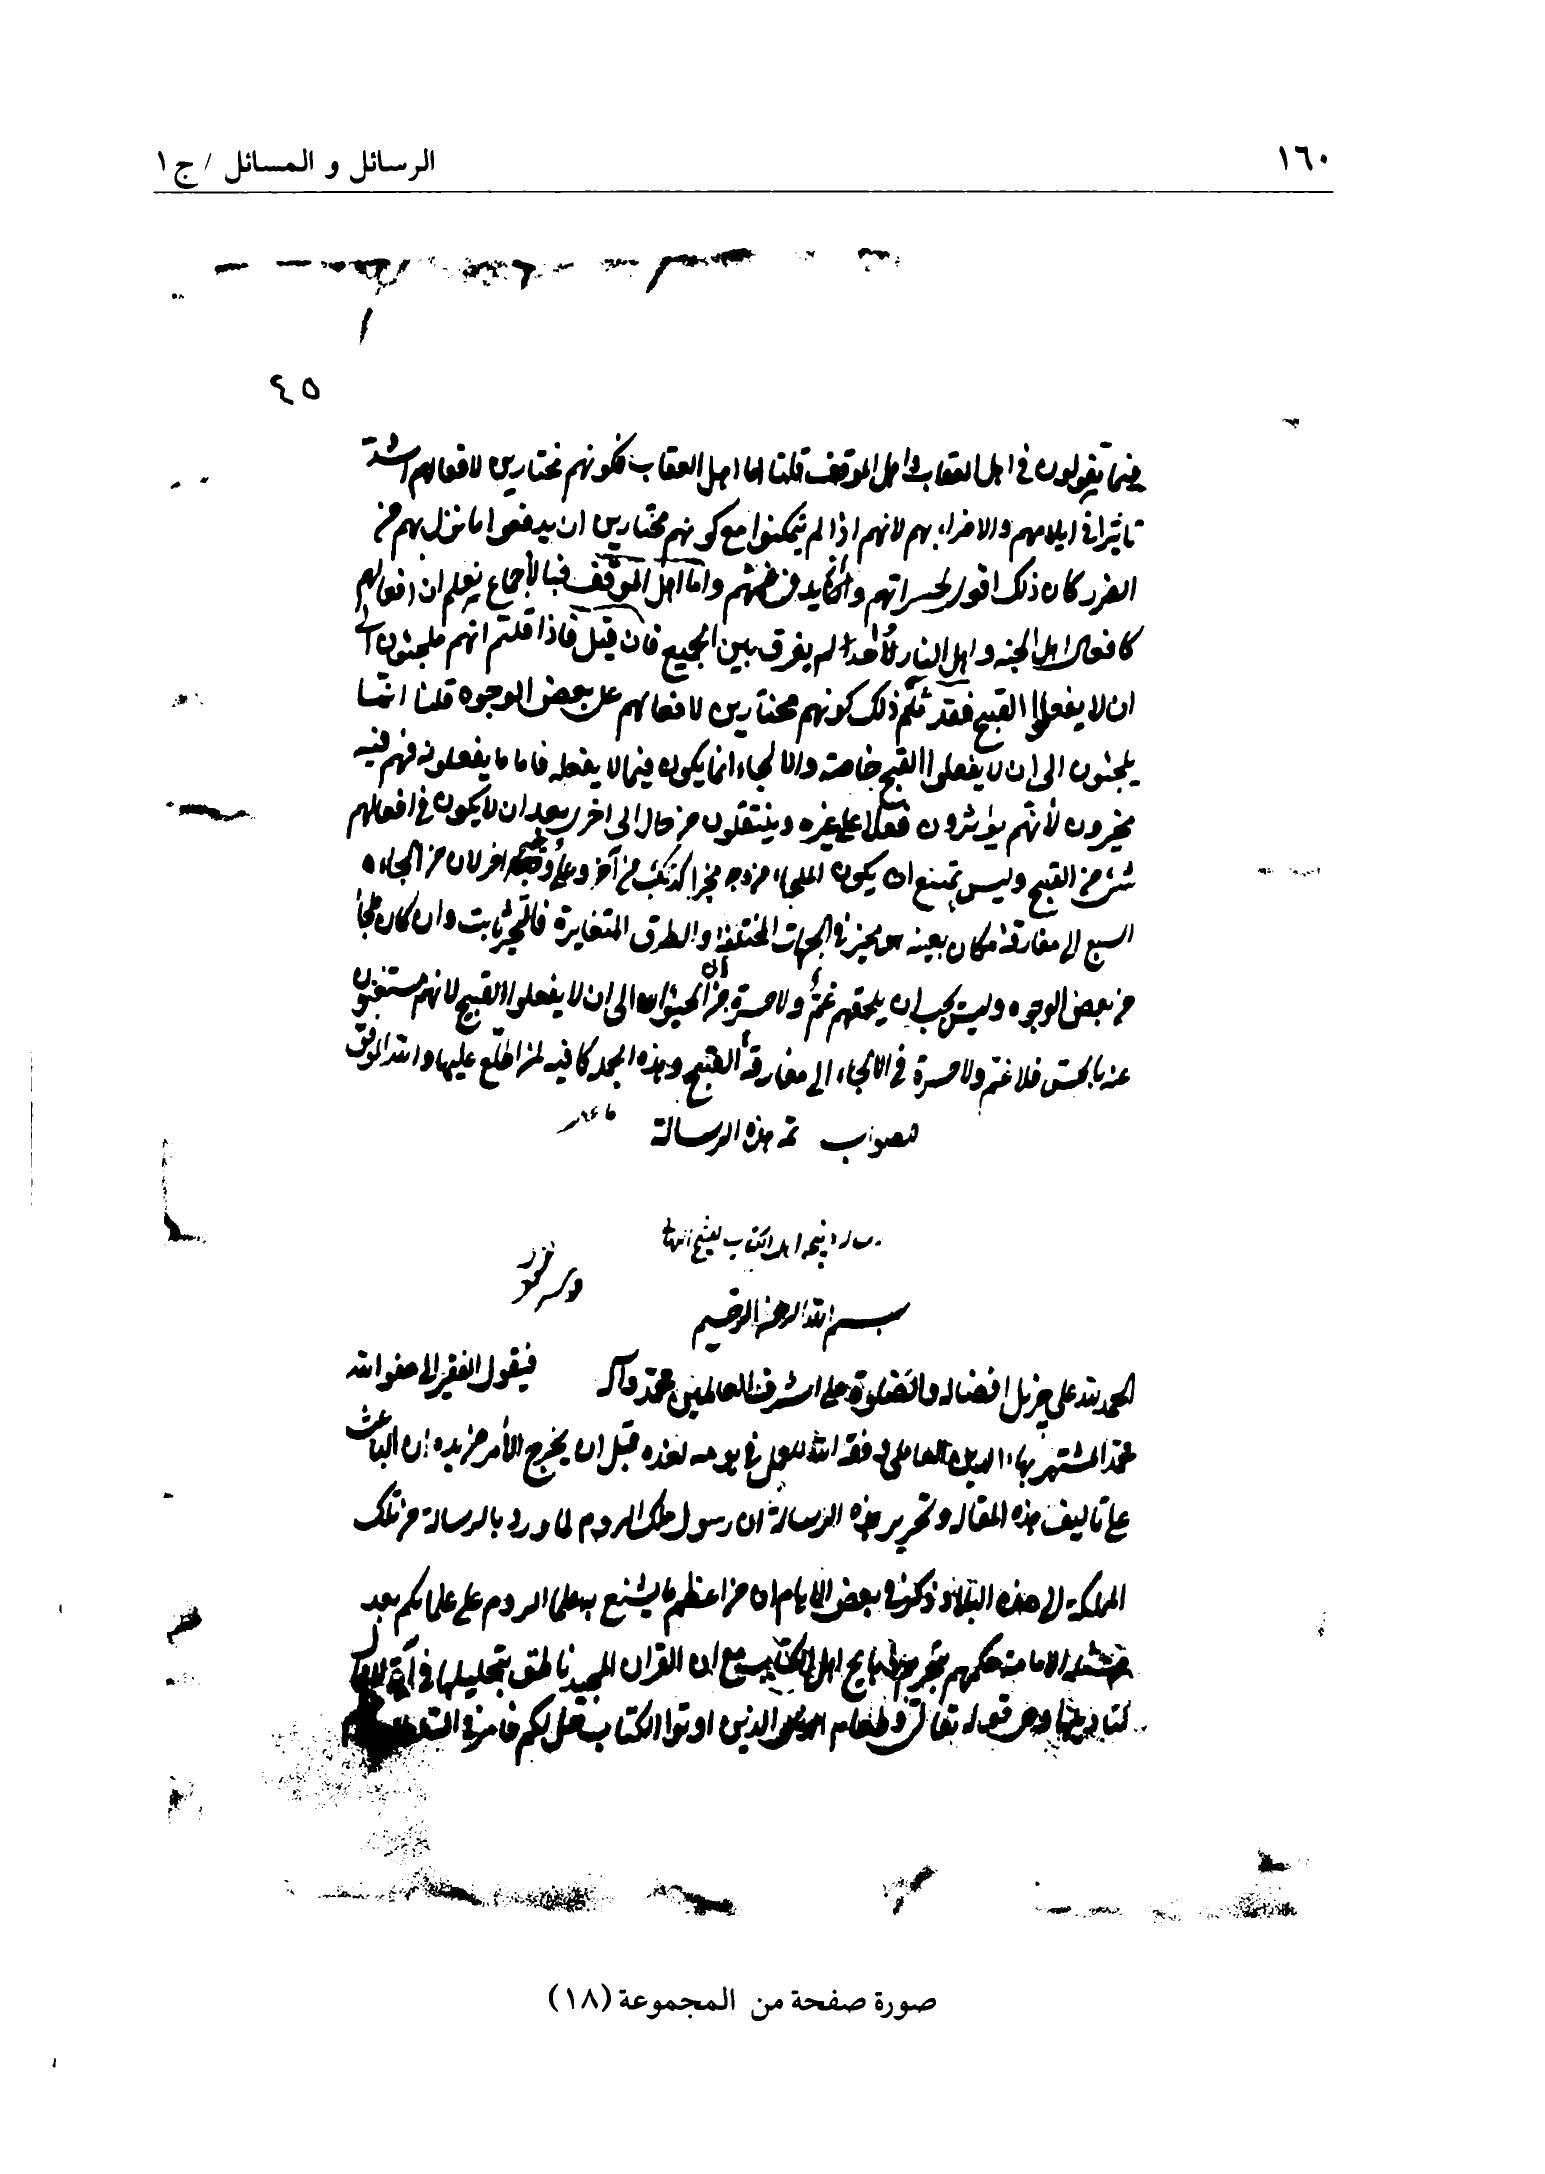 ١٦٠
الرسائل و المسائل / ج ١
٤٥
فيما تقولون في اهل العقاب و اهل الموقف قلنا اما اهل العقاب فكونهم مختارين لافعالهم اشد
تاثيرا في ايلامهم والاضرار بهم لانهم اذا لم يتمكنوا مع كونهم مختارين ان يدفعوا ما نزل بهم من
الضرر كان ذلك اقوى لحسراتهم واما اهل الموقف فبالأجماع نعلم ان افعالهم
كافعال اهل الجنه و اهل النار لم يفرق بين الجميع فان قيل فاذا قلتم انهم ملجئون الى
ان لا يفعلوا القبيح فقد ذلك كونهم مختارين لافعالهم على بعض الوجوه قلنا انما
يلجئون الى ان لا يفعلوا القبيح خاصة والالجاء انما يكون فيما لا يفعله فاما ما يفعلونه فهم فيه
مخيرون لأنهم يؤثرون فعلا على غيره وينتقلون من حال الى اخرى بعد ان لا يكون في افعالهم
شئ من القبيح وليس يمتنع ان يكون الملجاء من وجه مخيرا من آخر لان من الجاء
السبع الى مفارقة مكان بعينه مخير في الجهات المختلفة والطرق المتغايرة فالتخير ثابت وان كان ملجأ
من بعض الوجوه وليس يجب ان يلحقهم غم ولا حسرة من الى ان لا يفعلوا القبيح لانهم مستغنون
عنه بالحسن فلا غم ولا حسرة في الالجاء الى مفارقة القبيح وهذه الجمل كافيه لمن اطلع عليها والله الموفق
للصواب تمت هذه الرسالة
اهل الكتاب لشيخ
بسم الله الرحمن الرحيم
الحمد لله على جزيل افضاله والصلوة على اشرف العالمين محمد وآله فيقول الفقير الى عفو الله
محمد المشتهر ببهاء الدين العاملي وفقه الله للعمل في يومه لغده قبل ان يخرج الأمر من يده ان الباعث
على تاليف هذه المقاله وتحرير هذه الرسالة ان رسول ملك الروم لما ورد بالرسالة من تلك
المملكة الى هذه البلاد ذكر في بعض الايام ان من اعظم ما يشنع به علماء الروم على علمائكم بعد
مسئلة الامامة حكمهم بتحريم ذبايح اهل الكتاب مع ان القران المجيد ناطق بتحليلها في آية
وهي قوله تعالى وطعام الذين اوتوا الكتاب حل لكم
صورة صفحة من المجموعة (١٨)